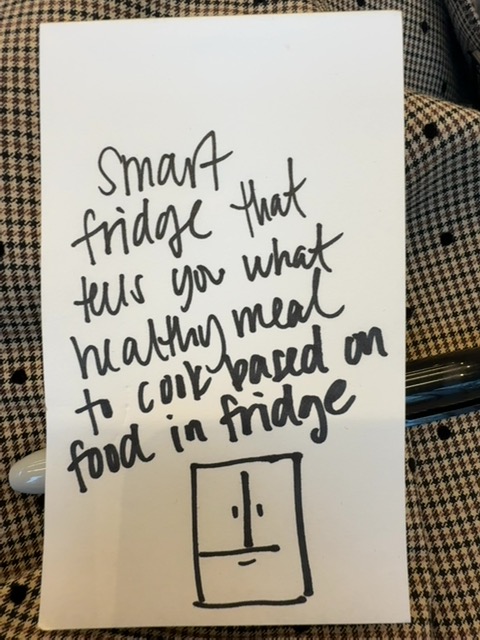 smart
fridge that
tells you what
healthy meal
to cook based on
food in fridge